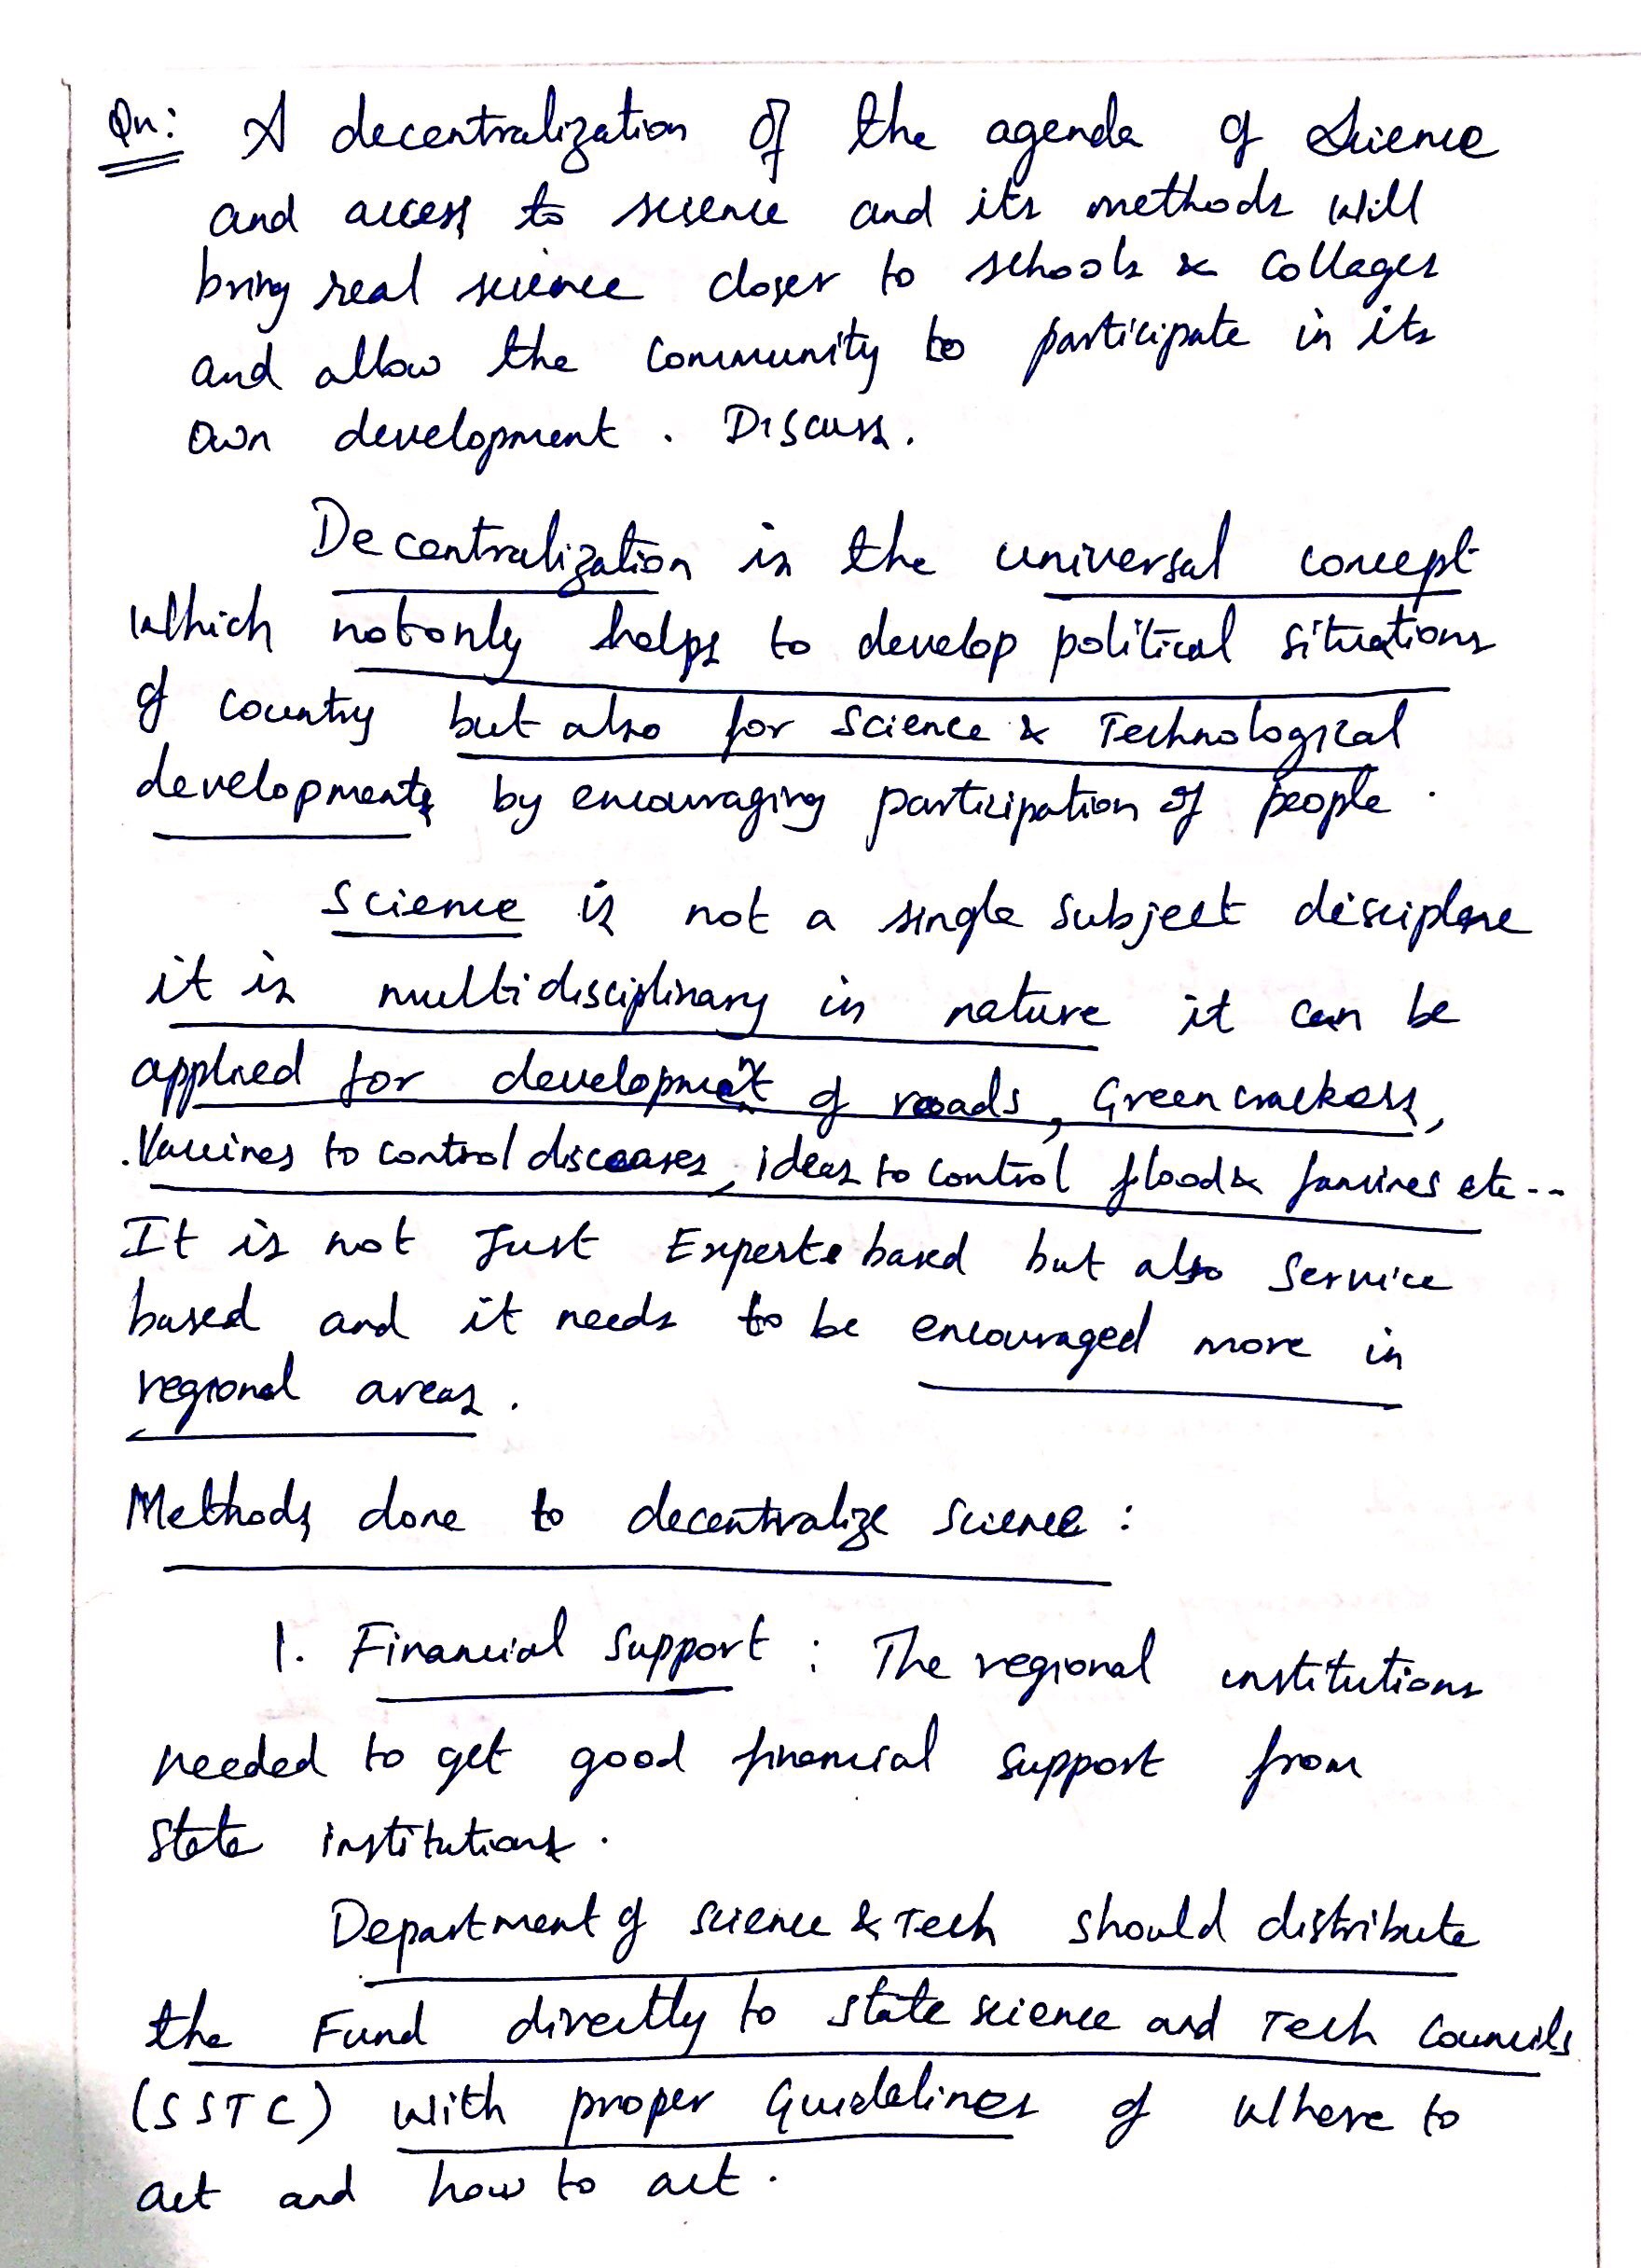 Qn: A decentralization of the agenda of Science
and access to science and its methods will
bring real science closer to schools & Collages
and allow the Community to participate in its
own development. Discuss.
Decentralization is the universal concept
which notonly helps to develop political situations
of country but also for Science & Technological
developments by encouraging participation of people.
Science is not a single subject discipline
it is multidisciplinary in nature it can be
applied for development of roads, Green crackers,
Vaccines to control diseases, ideas to control flood & famines etc--
It is not Just Experts based but also Service
based and it needs to be encouraged more in
regional areas.
Methods done to decentralize science:
1. Financial Support : The regional institutions
needed to get good financial support from
State institutions.
Department of science & Tech should distribute
the Fund directly to state science and Tech Councils
(SSTC) with proper Guidelines of where to
act and how to act.